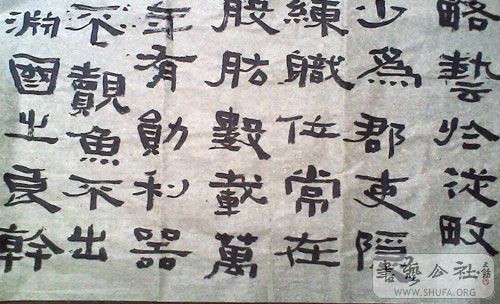 略藝於從畋
少爲郡吏隱
練職位常在
股肱數載萬
年有勛利器
不覿魚不出
渊國之良幹
書藝公社
WWW.SHUFA.ORG